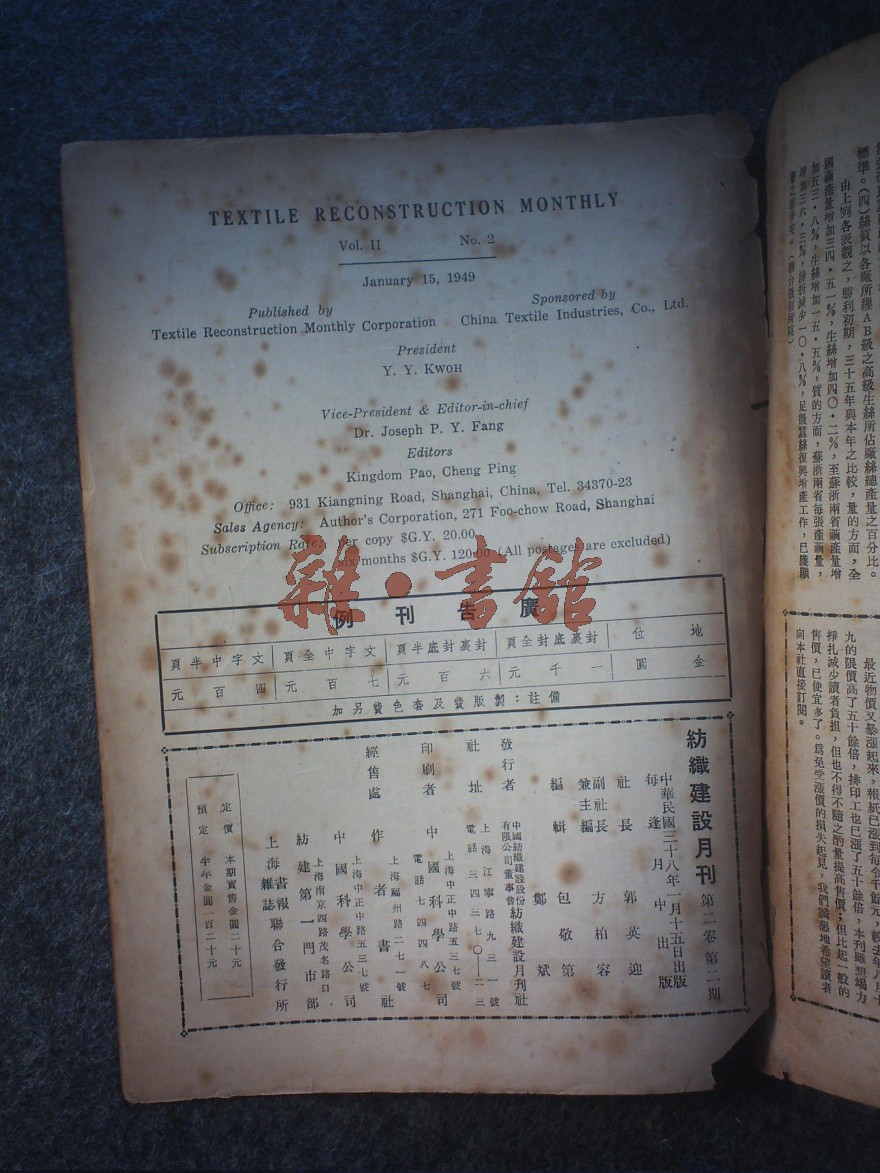 TEXTILE RECONSTRUCTION MONTHLY
Vol. II No. 2
January 15, 1949
Published by Sponsored by
Textile Reconstruction Monthly Corporation China Textile Industries, Co., Ltd.
President
Y. Y. KWOH
Vice-President & Editor-in-chief
Dr. Joseph P. Y. Fang
Editors
Kingdom Pao, Cheng Ping
Office: 931 Kiangning Road, Shanghai, China, Tel. 34370-23
Sales Agency: Author's Corporation, 271 Foo-chow Road, Shanghai
Subscription Rate: per copy $G.Y. 20.00
six months $G.Y. 120.00 (All postages are excluded)
雜·書館
廣告刊例
地位 封裏底封全頁 封裏封底半頁 文字中全頁 文字中半頁
金圓 一千元 六百元 七百元 四百元
備註：製版費及套色費另加
紡織建設月刊 第二卷第二期
中華民國三十八年一月十五日出版
每逢月中出版
社長 郭英迎
副社長兼主編 方柏容
編輯 包敬第
鄭斌
發行者 中國紡織建設股份有限公司董事會 紡織建設月刊社
社址 上海江寧路九三一號
電話三四三七〇—二三
印刷者 中國科學公司
上海中正中路五三七號
電話七四四八七
經售處 作者書社
上海福州路二七一號
中國科學公司
上海中正中路五三七號
紡建第一門市部
上海南京四路茂名路口
上海書報雜誌聯合發行所
定價 本期實售金圓二十元
預定 半年金圓一百二十元
標準。（四）絲質以各廠所繰AB級之高級生絲所佔廠絲總產量之百分比。
由上列各表觀之，勝利初期，三十五年與本年之比較，量的方面，全
國繭產量增加三四·五一％，生絲增加四〇·二％，至蘇浙兩省繭產量增
加五三·八％，生絲增加一五·五％，質的方面，蘇浙兩省每張產繭量，
增加三六·三％，繰折減少一〇·八％，足徵蠶絲復興增產工作，已獲顯
最近物價又暴漲起來，報紙已漲到每令千餘元，較去年八月十
九的限價高了五十餘倍，排印工也已漲了五十餘倍，本刊雖想竭力
掙扎減少讀者負担，但也不得不隨之酌量提高售價；但比起一般的
售價，已便宜多了。爲免受漲價的損失起見，我們誠懇地希望讀者
向本社直接訂閱。